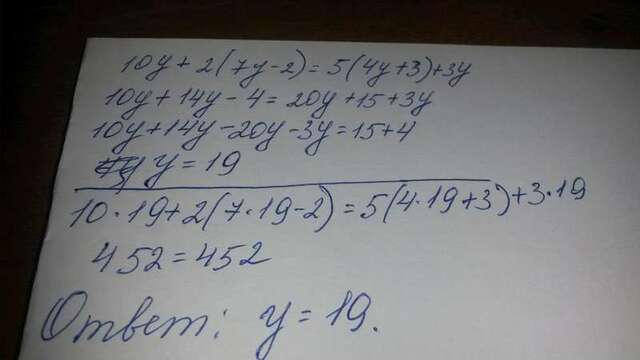 10y + 2(7y-2) = 5(4y+3)+3y
10y + 14y - 4 = 20y + 15 + 3y
10y + 14y - 20y - 3y = 15 + 4
y = 19
10·19 + 2(7·19-2) = 5(4·19+3) + 3·19
452 = 452
Ответ: y = 19.